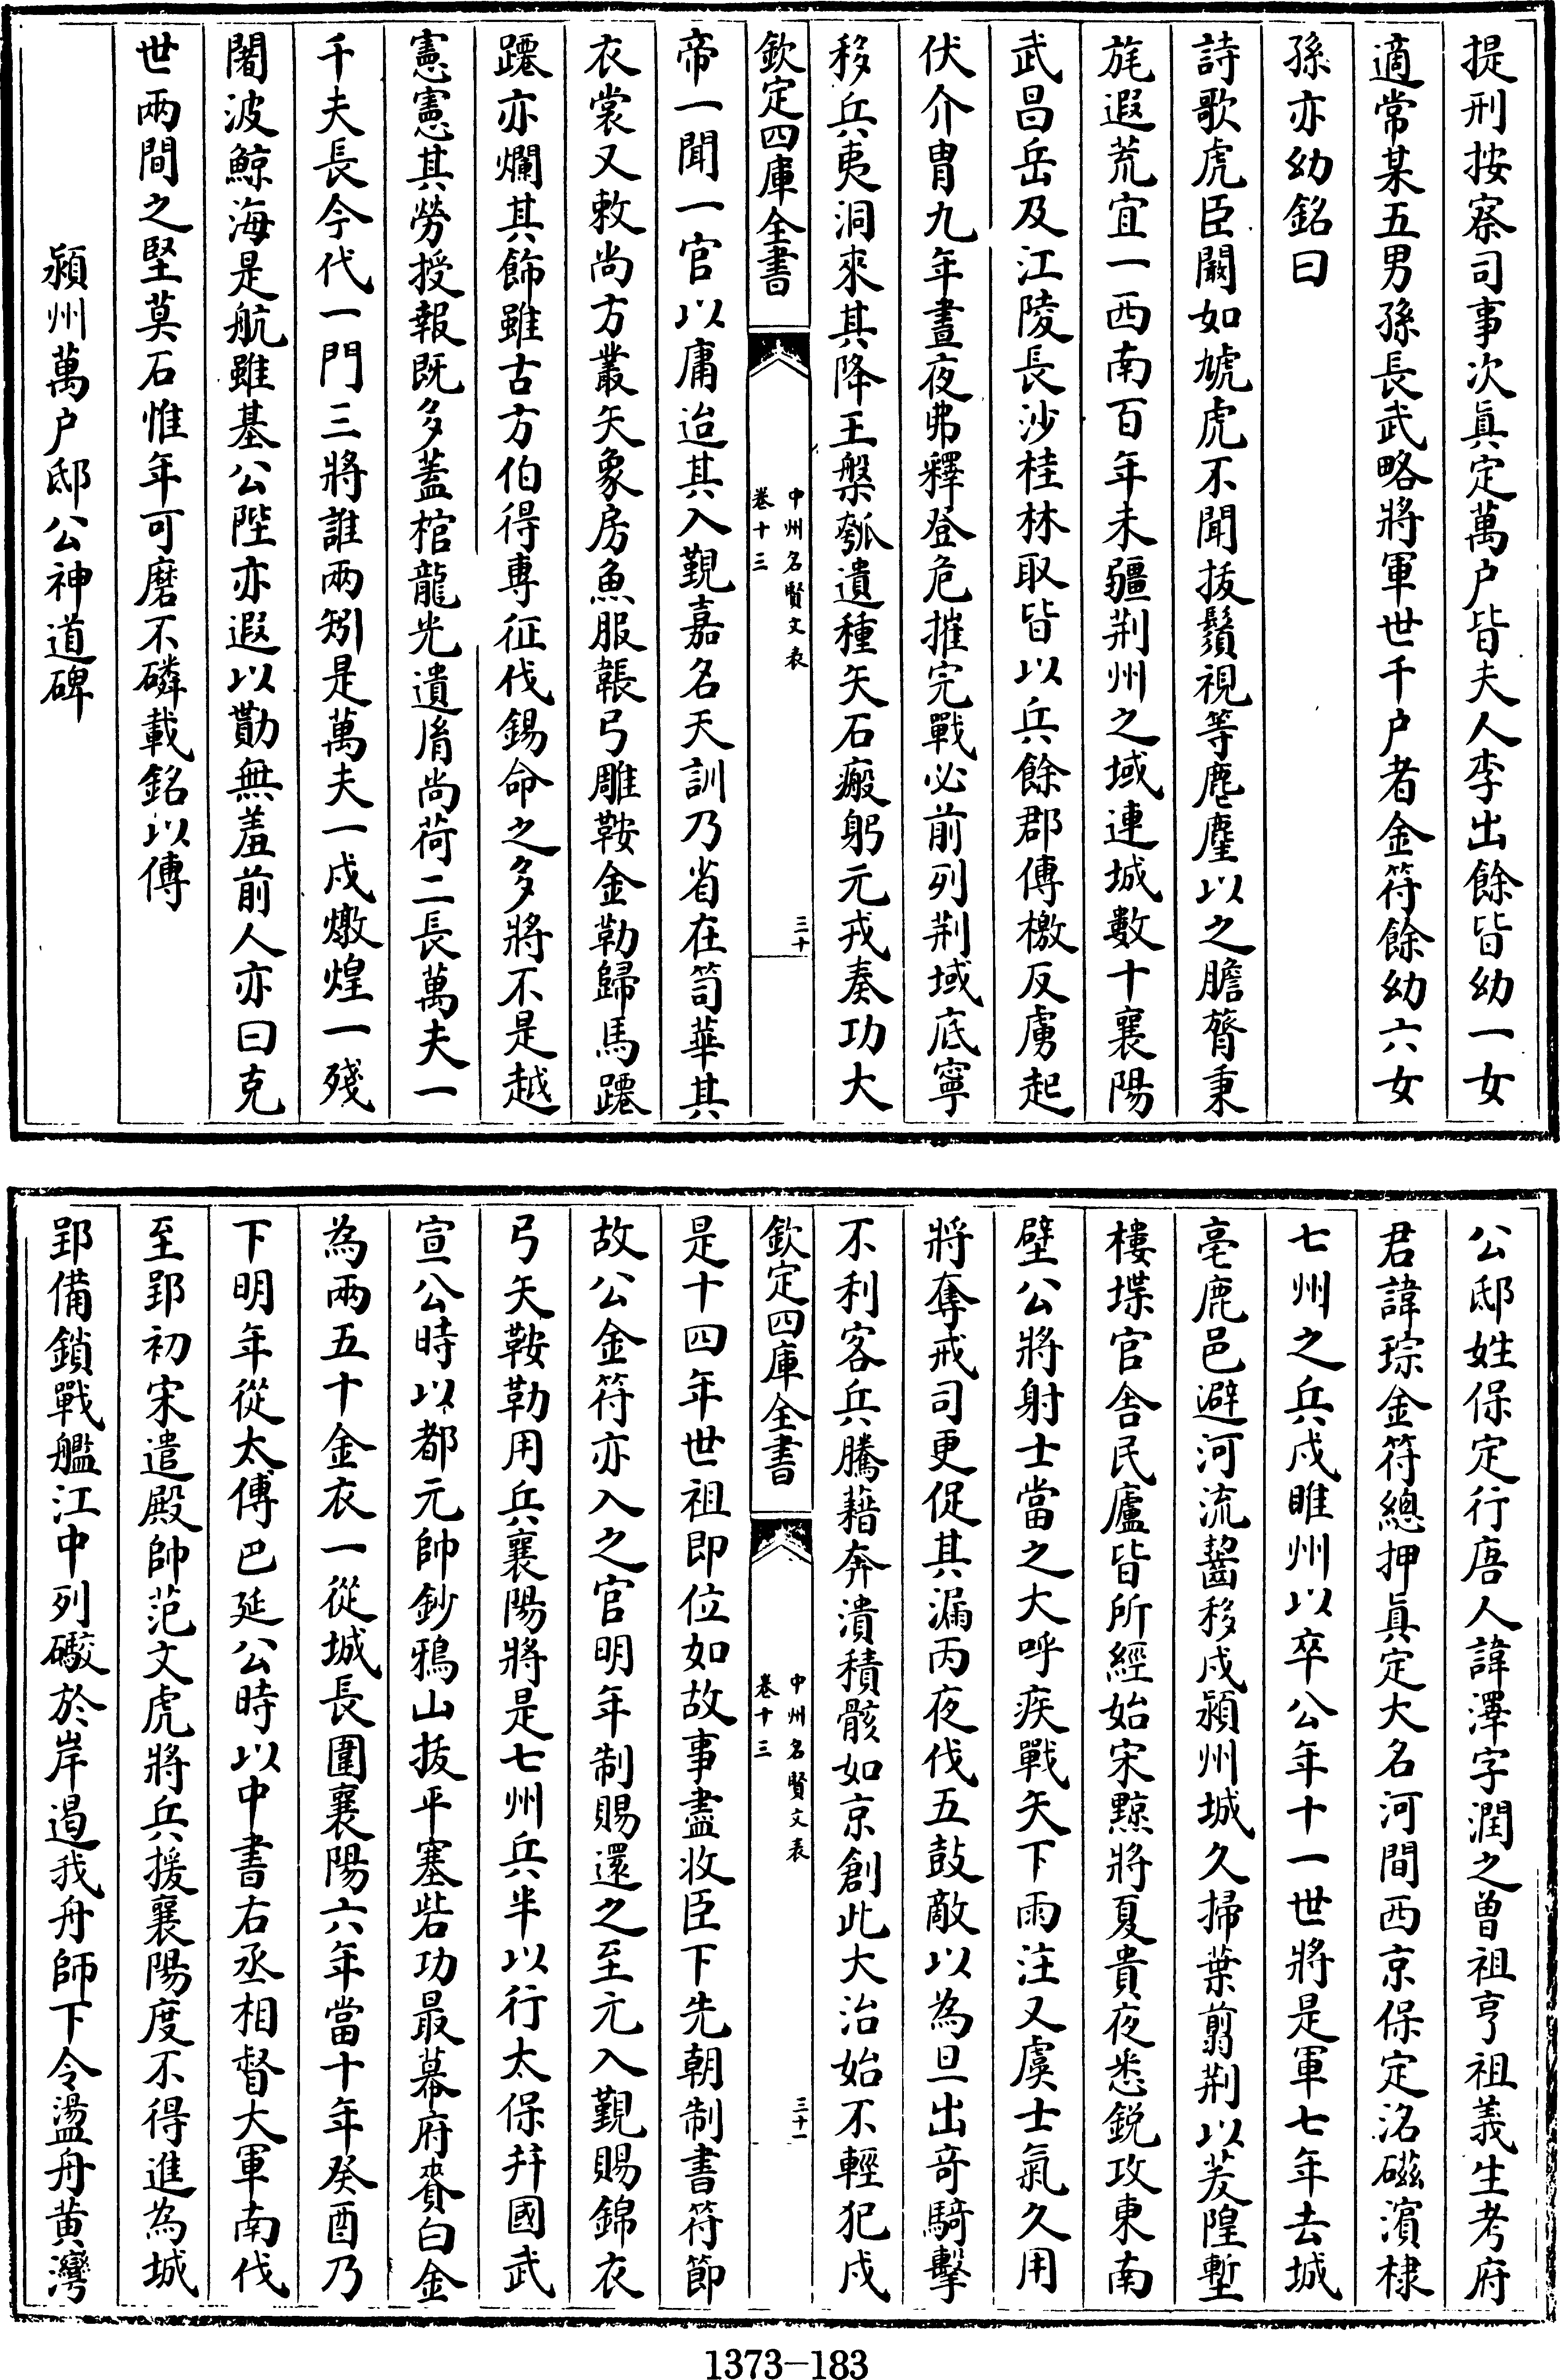 提刑按察司事次眞定萬户皆夫人李出餘皆幼一女
適常某五男孫長武略將軍世千户者金符餘幼六女
孫亦幼銘曰
詩歌虎臣闞如虓虎不聞拔鬚視等麀麈以之膽膂秉
旄遐荒宜一西南百年未疆荆州之域連城數十襄陽
武昌岳及江陵長沙桂林取皆以兵餘郡傳檄反虜起
伏介胄九年晝夜弗釋登危摧完戰必前列荆域底寧
移兵夷洞來其降王槃瓠遺種矢石瘢躬元戎奏功大
欽定四庫全書
中州名賢文表
卷十三
三十
帝一聞一官以庸迨其入覲嘉名天訓乃省在笥華其
衣裳又敕尚方叢矢象房魚服韔弓雕鞍金勒歸馬躚
躚亦爛其飾雖古方伯得專征伐錫命之多將不是越
憲憲其勞授報既多蓋棺龍光遺胤尚荷二長萬夫一
千夫長今代一門三將誰兩矧是萬夫一戍燉煌一殘
闍波鯨海是航雖基公陛亦遐以勩無羞前人亦曰克
世兩間之堅莫石惟年可磨不磷載銘以傳
潁州萬户邸公神道碑
公邸姓保定行唐人諱澤字潤之曾祖亨祖義生考府
君諱琮金符總押眞定大名河間西京保定洺磁濱棣
七州之兵戍睢州以卒公年十一世將是軍七年去城
亳鹿邑避河流齧移戍潁州城久掃葉翦荆以芟隍塹
樓堞官舍民廬皆所經始宋黥將夏貴夜悉鋭攻東南
壁公將射士當之大呼疾戰矢下雨注又虞士氣久用
將奪戒司更促其漏丙夜伐五鼓敵以為旦出竒騎擊
不利客兵騰藉奔潰積骸如京創此大治始不輕犯戍
欽定四庫全書
中州名賢文表
卷十三
三十一
是十四年世祖即位如故事盡收臣下先朝制書符節
故公金符亦入之官明年制賜還之至元入覲賜錦衣
弓矢鞍勒用兵襄陽將是七州兵半以行太保幷國武
宣公時以都元帥鈔鴉山拔平塞砦功最幕府賚白金
為兩五十金衣一從城長圍襄陽六年當十年癸酉乃
下明年從太傅巴延公時以中書右丞相督大軍南伐
至郢初宋遣殿帥范文虎將兵援襄陽度不得進為城
郢備鎖戰艦江中列礮於岸遏我舟師下令盪舟黄灣
1373—183